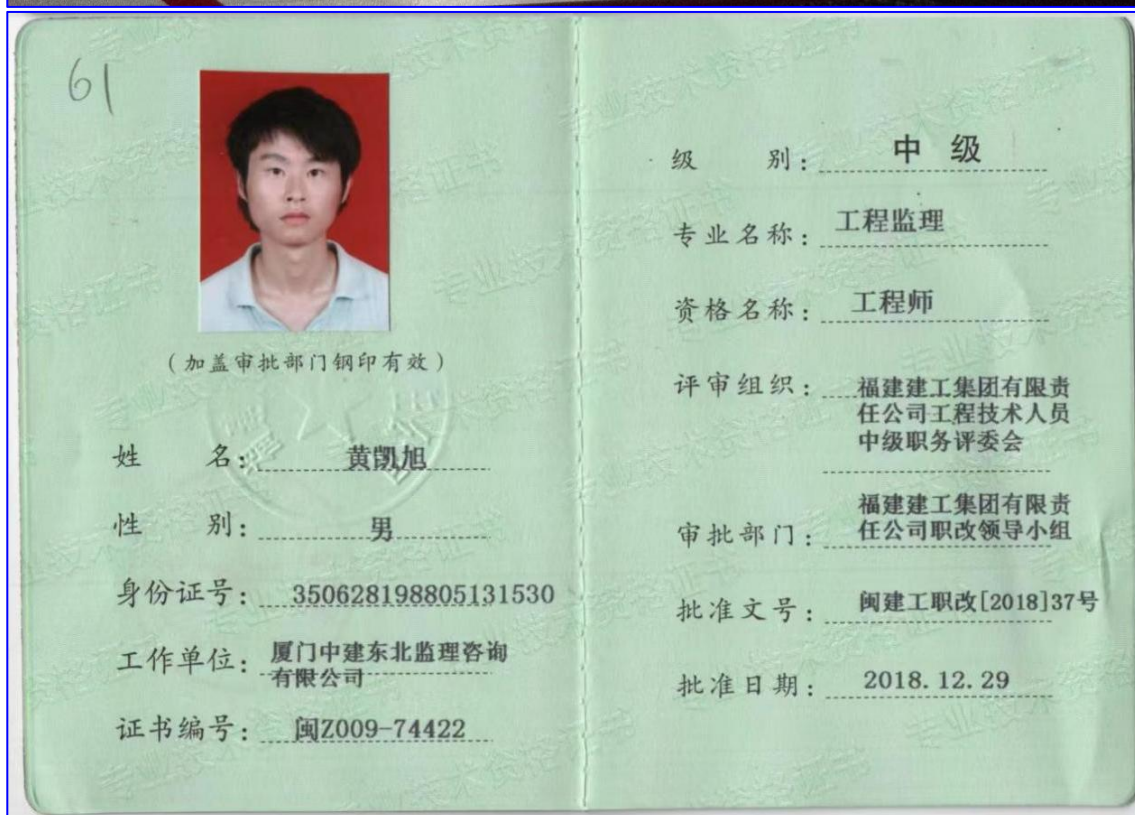 61
(加盖审批部门钢印有效)
姓 名: 黄凯旭
性 别: 男
身份证号: 350628198805131530
工作单位: 厦门中建东北监理咨询
有限公司
证书编号: 闽Z009-74422
级 别: 中 级
专业名称: 工程监理
资格名称: 工程师
评审组织: 福建建工集团有限责
任公司工程技术人员
中级职务评委会
福建建工集团有限责
审批部门: 任公司职改领导小组
批准文号: 闽建工职改[2018]37号
批准日期: 2018.12.29